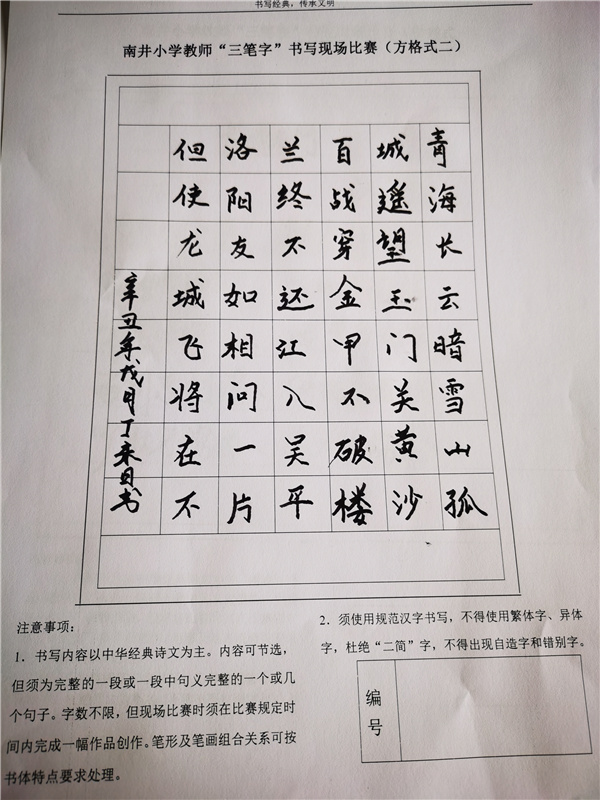 书写经典，传承文明
南井小学教师“三笔字”书写现场比赛（方格式二）
青海长云暗雪山孤
城遥望玉门关黄沙
百战穿金甲不破楼
兰终不还江入吴平
洛阳友如相问一片
但使龙城飞将在不
辛丑年戌月丁未日书
注意事项：
1．书写内容以中华经典诗文为主。内容可节选，
但须为完整的一段或一段中句义完整的一个或几
个句子。字数不限，但现场比赛时须在比赛规定时
间内完成一幅作品创作。笔形及笔画组合关系可按
书体特点要求处理。
2．须使用规范汉字书写，不得使用繁体字、异体
字，杜绝“二简”字，不得出现自造字和错别字。
编号